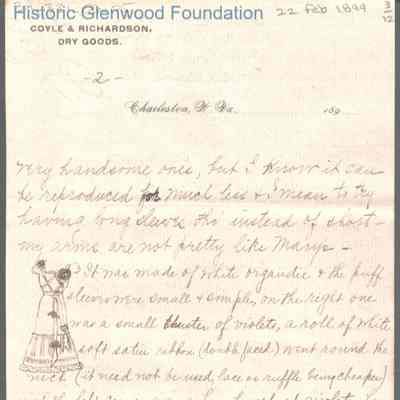 Historic Glenwood Foundation
22 Feb 1899
3/12
COYLE & RICHARDSON,
DRY GOODS.
- 2 -
Charleston, W. Va. 189
very handsome ones, but I know it can
be reproduced for much less & I mean to try
having long sleeves tho instead of short -
my arms are not pretty like Mary's -
It was made of white organdie & the puff
sleeves were small & simple, on the right one
was a small cluster of violets, a roll of white
soft satin ribbon (double faced) went around the
neck (it need not be used, lace or ruffle being cheaper)